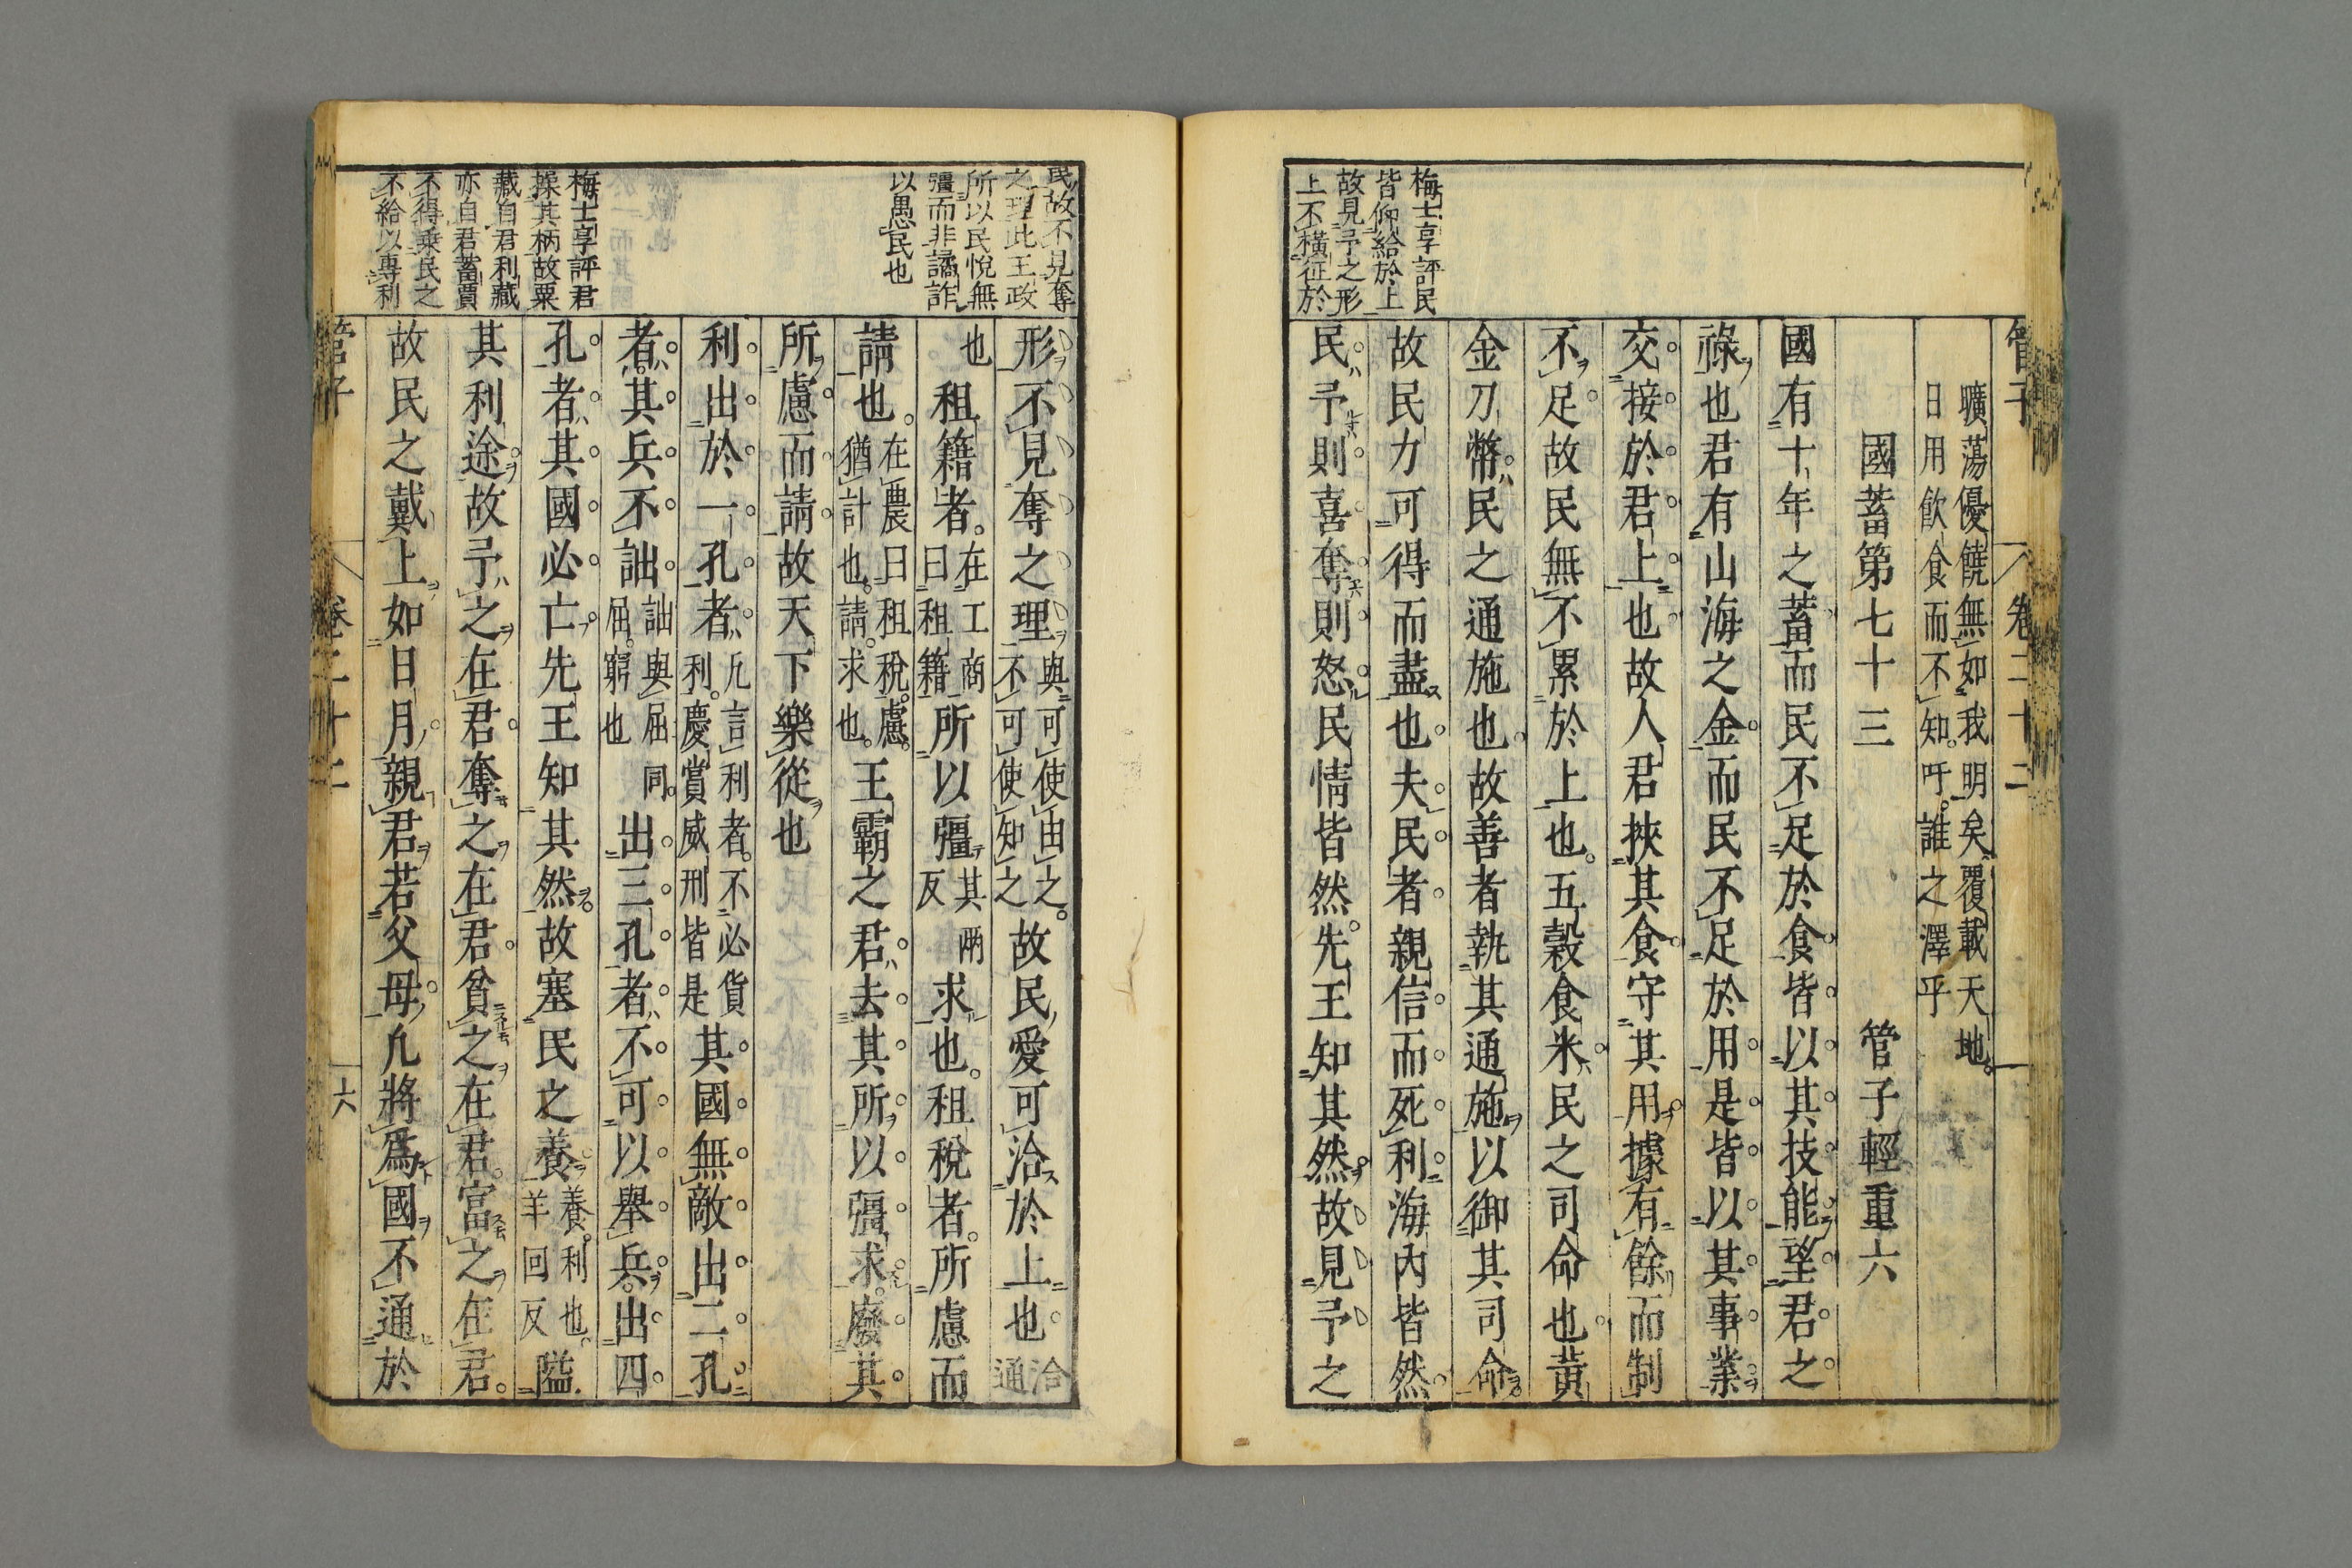 管子 卷二十二
曠蕩優饒無如我明矣覆載天地
日用飲食而不知吁誰之澤乎
國蓄第七十三 管子輕重六
國有十年之蓄而民不足於食皆以其技能望君之
祿也君有山海之金而民不足於用是皆以其事業
交接於君上也故人君挾其食守其用據有餘而制
不足故民無不累於上也五穀食米民之司命也黃
金刀幣民之通施也故善者執其通施以御其司命
故民力可得而盡也夫民者親信而死利海內皆然
民予則喜奪則怒民情皆然先王知其然故見予之
梅士享評民
皆仰給於上
故見予之形
上不橫征於
民故不見奪
之理此王政
所以民悅無
彊而非譎詐
以愚民也
形不見奪之理與可使由之不可使知之故民愛可洽於上也洽通
也租籍者在工商曰租籍所以彊其兩反求也租稅者所慮而
請也在農曰租稅慮猶計也請求也王霸之君去其所以彊求廢其
所慮而請故天下樂從也
利出於一孔者凡言利者不必貨利慶賞威刑皆是其國無敵出二孔
者其兵不詘詘與屈同屈窮也出三孔者不可以舉兵出四
孔者其國必亡先王知其然故塞民之養養利也羊回反隘
其利途故予之在君奪之在君貧之在君富之在君
故民之戴上如日月親君若父母凡將為國不通於
梅士享評君
操其柄故粟
藏自君利藏
亦自君蓄賈
不得乘民之
不給以專利
管子 卷二十二 六